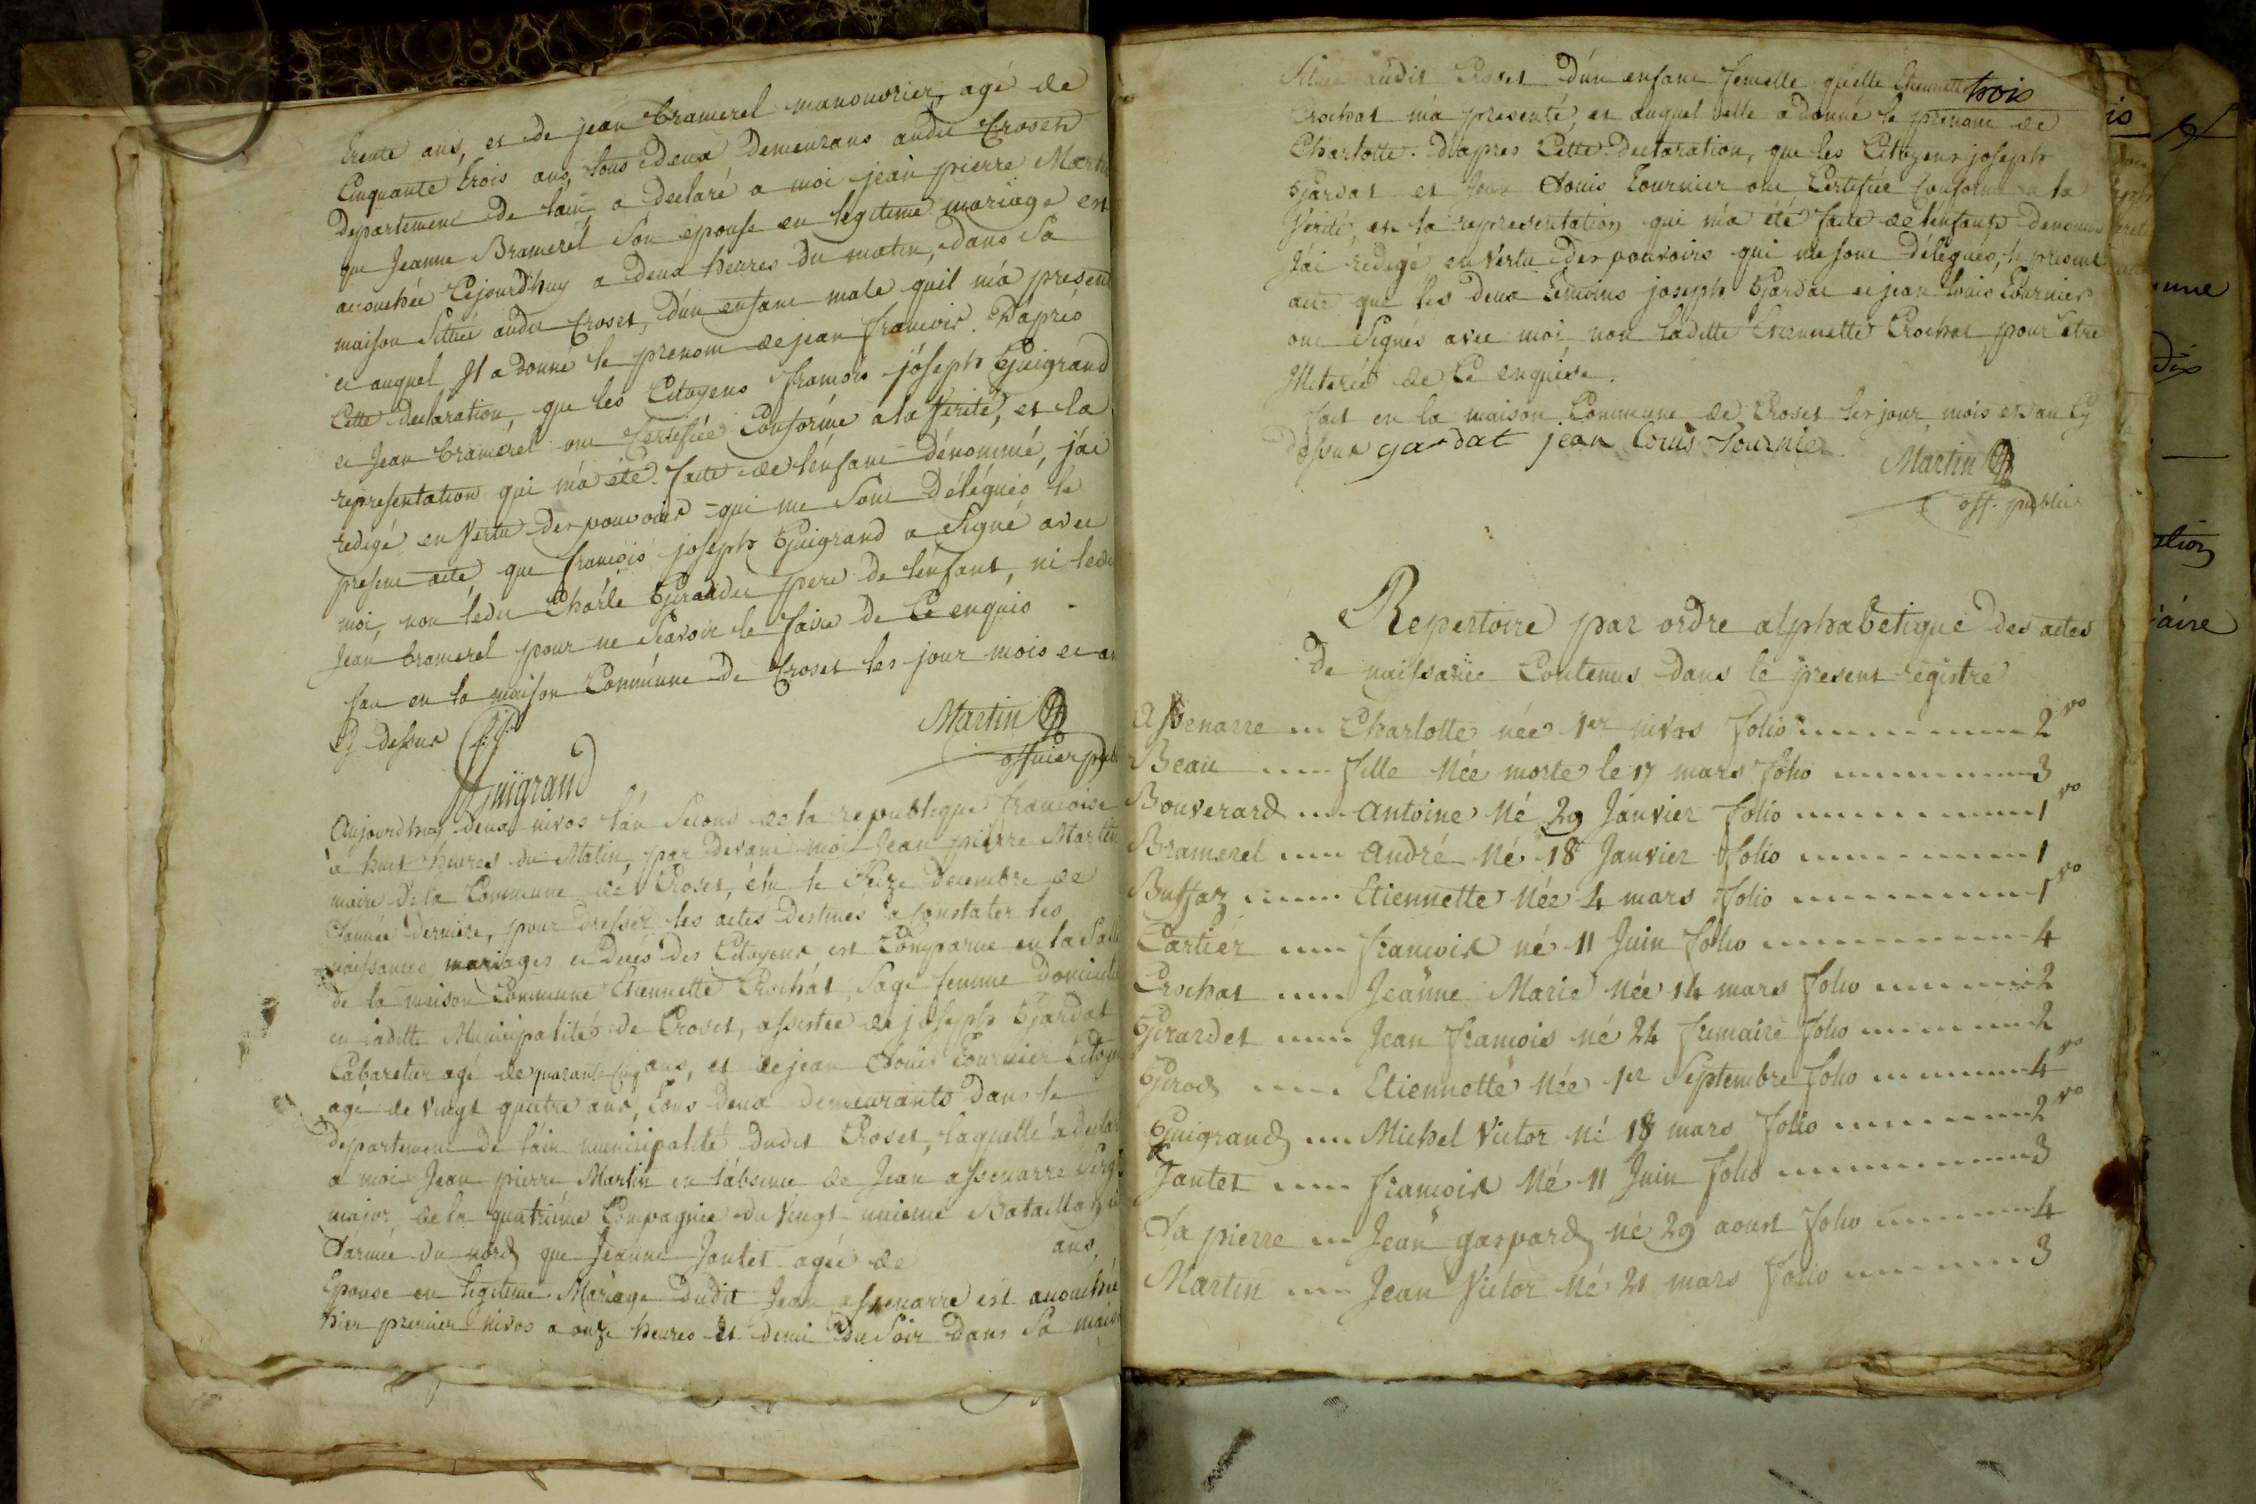 trente ans, et de jean Bramerel manouvrier, agé de
Cinquante trois ans tous deux demeurans audit Croset
departement de lain, a declaré a moi jean pierre Martin
que Jeanne Bramerel Son epouse en legitime mariage est
accouchée Cejourdhuy a deux heures du matin, dans Sa
maison Située audit Croset, d'un enfant male quil m'a present
et auquel Il a donné le prenom de jean francois. D'après
Cette declaration, que les Citoyens francois joseph Guigrand
et Jean Bramerel ont Certifiée Conforme a la Verité, et la
representation qui m'a été faite de l'enfant dénommé, j'ai
redigé en Vertu des pouvoirs qui me Sont Délégués le
present acte, que francois joseph Guigrand a Signé avec
moi, non ledit Charle Girardet pere de l'enfant, ni ledit
Jean bramerel pour ne Scavoir le faire de Ce enquis
fait en la maison Commune de Croset les jour mois et an
Cy dessus
Martin
officier pub
Guigrand
Aujourdhuy deux nivos l'an Second de la republique francoise
a huit heures du Matin, par devant moi Jean pierre Martin
maire de la Commune de Croset, élu le Seize decembre de
l'année derniere, pour dresser les actes destinés a Constater les
naissances, mariages et Décés des Citoyens, est Comparue en la Salle
de la maison Commune Etiennette Crochat, Sage femme domicilie
en ladite Municipalité de Croset, assistée de joseph Gardat
Cabaretier agé de quarante cinq ans, et de jean Louis Tournier Citoy
agé de Vingt quatre ans, tous deux demeurants dans le
departement de l'ain municipalité dudit Croset, laquelle a declar
a moi Jean pierre Martin en l'absence de Jean assenarre Serg
major de la quatriéme Compagnie du Vingt unieme Bataillon
L'armée du nord que Jeanne Jantet agée de ans,
Epouse en legitime Mariage dudit Jean assenarre est accouchée
hier premier nivos a onze heures et demi du Soir dans Sa mais
trois
Située audit Croset D'un enfant femelle qu'elle Etiennette
Crochat m'a presenté, et auquel elle a donné le prenom de
Charlotte. D'apres Cette Declaration, que les Citoyens joseph
Gardat et Jean Louis Tournier ont Certifiée Conforme a la
Verité, et la representation qui m'a été faite de l'enfant denommé
J'ai redigé en Vertu des pouvoirs qui me sont délégués, le present
acte que les deux temoins joseph Gardat et jean louis Tournier
ont Signés avec moi, non ladite Etiennette Crochat pour être
Illeterée de Ce enquise.
fait en la maison Commune de Croset les jour, mois et an Cy
dessus gardat jean Louis Tournier
Martin
off. public
Repertoire par ordre alphabétique des actes
De naissance Contenus dans le present registre
Assenarre Charlotte née 1er nivos folio 2 vo
Beau fille Née morte le 17 mars folio 3
Bouverard Antoine Né 29 Janvier folio 1 vo
Bramerel André Né 18 Janvier folio 1
Buffaz Etiennette Née 4 mars folio 1 vo
Cartier francois né 11 Juin folio 4
Crochat Jeanne Marie Née 14 mars folio 2
Girardet Jean francois né 24 frimaire folio 2
Girod Etiennette Née 1er Septembre folio 4 vo
Guigrand Michel Victor Né 18 mars folio 2 vo
Jantet francois Né 11 Juin folio 3
La pierre Jean gaspard né 29 aoust folio 4
Martin Jean Victor Né 21 mars folio 3